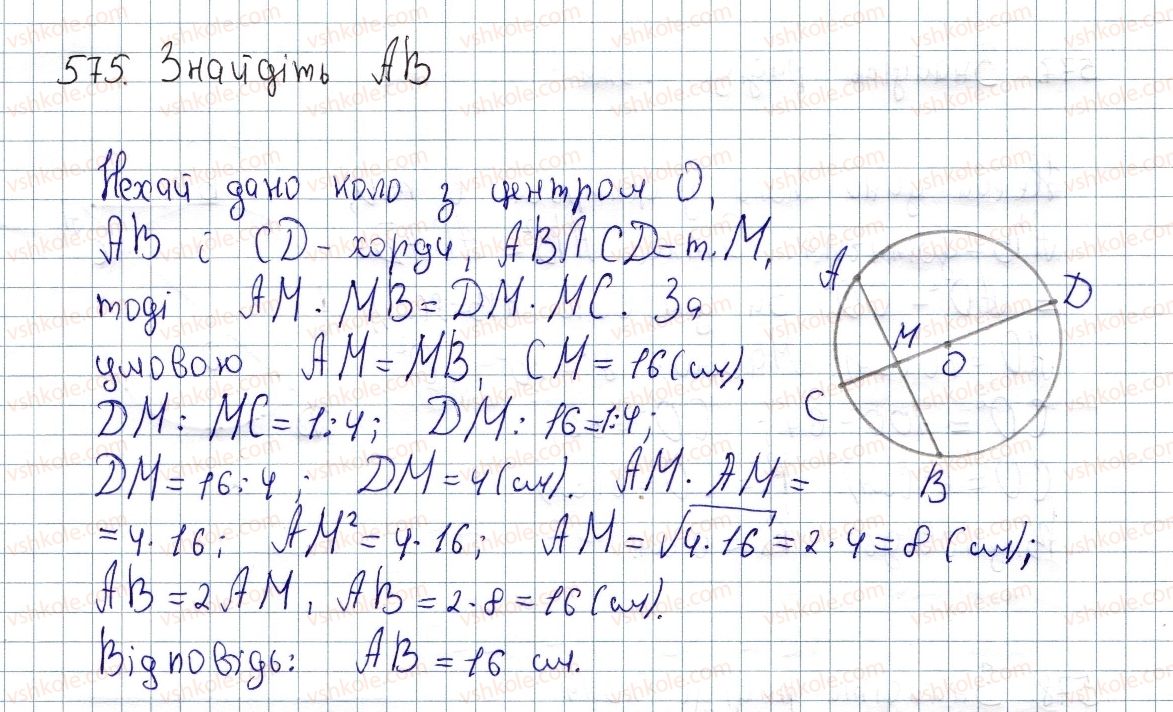 575. Знайдіть AB
Нехай дано коло з центром O,
AB і CD - хорди, AB∩CD = т.M,
тоді AM · MB = DM · MC. За
умовою AM = MB, CM = 16 (см),
DM : MC = 1:4; DM : 16 = 1:4;
DM = 16:4; DM = 4 (см). AM · AM =
= 4 · 16; AM² = 4 · 16; AM = √4·16 = 2 · 4 = 8 (см);
AB = 2AM, AB = 2 · 8 = 16 (см).
Відповідь: AB = 16 см.
A
D
M
O
C
B
vshkole.com